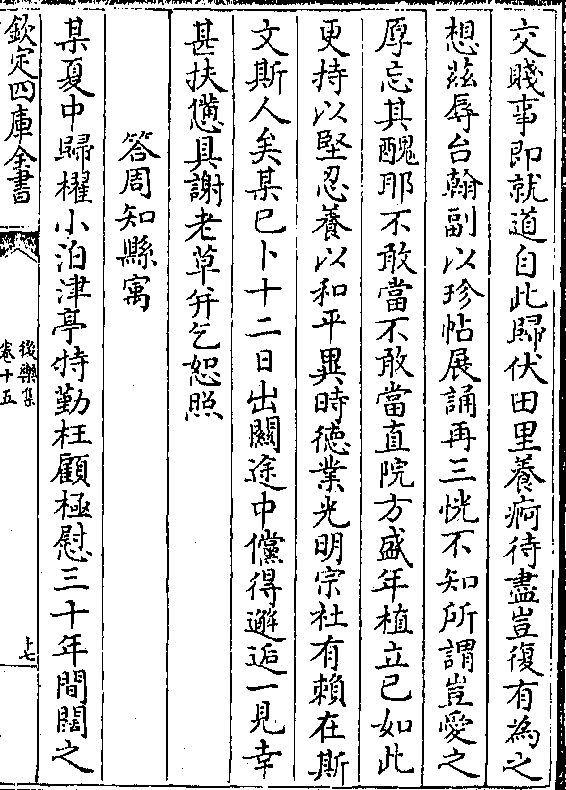 交賤事即就道自此歸伏田里養痾待盡豈復有為之
想茲辱台翰副以珍帖展誦再三恍不知所謂豈愛之
厚忘其醜耶不敢當不敢當直院方盛年植立已如此
更持以堅忍養以和平異時徳業光明宗社有賴在斯
文斯人矣某已卜十二日出關途中儻得邂逅一見幸
甚扶憊具謝老草并乞恕照
答周知縣寓
某夏中歸櫂小泊津亭特勤枉顧極慰三十年間闊之
欽定四庫全書
後樂集
卷十五
十七